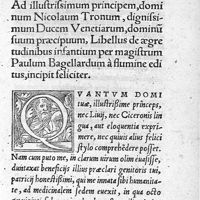 Ad illustrissimum principem, domi
num Nicolaum Tronum, dignissi-
mum Ducem Venetiarum, dominũ
suum præcipuum, Libellus de ægre
tudinibus infantium per magistrum
Paulum Bagellardum à flumine edi
tus, incipit feliciter.
QVANTVM DOMI
tuæ, illustrissime princeps,
nec Liuij, nec Ciceronis lin
gua, aut eloquentia expri
mere, nec quiuis alius felici
stylo comprehédere posset.
Nam cum puto me, in clarum uirum olim euasisse,
duntaxat beneficijs illius præclari genitoris tui,
patricij honestissimi, qui me innata sibi humanita-
te, ad medicinalem sedem euexit, in qua octo